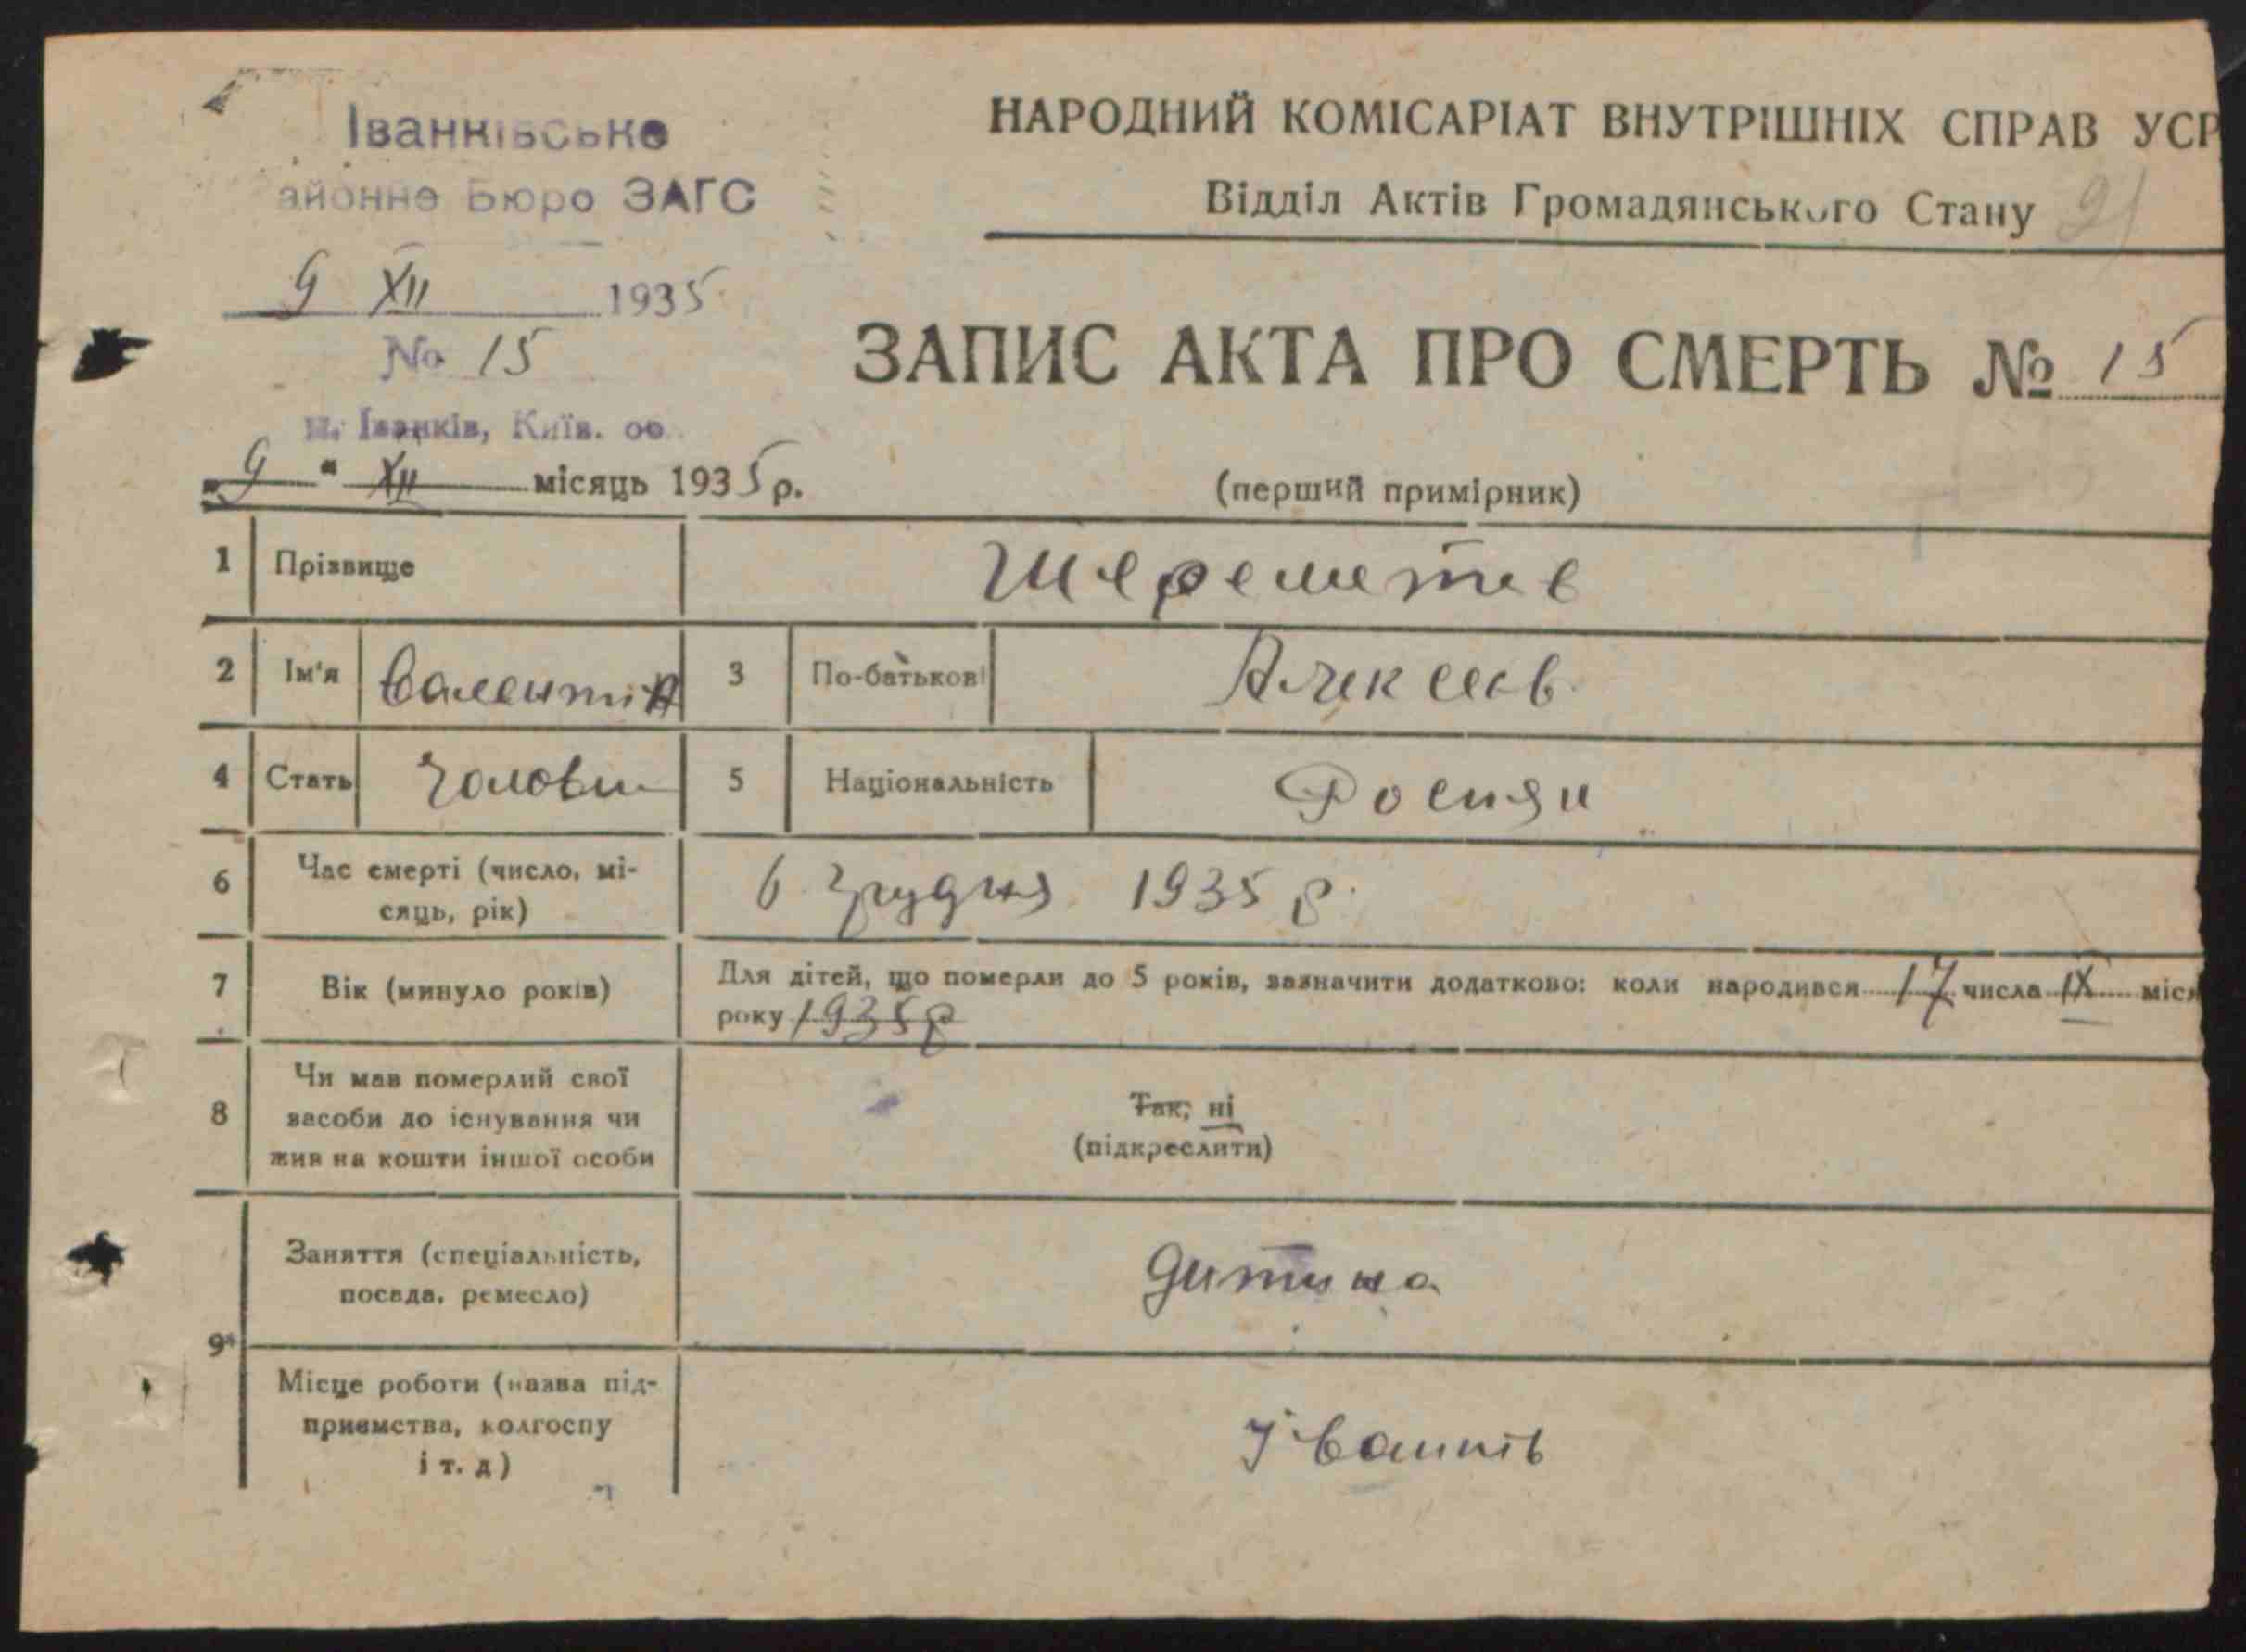 Іванківське
айонне Бюро ЗАГС
9 XII 1935
№ 15
м. Іванків, Київ. об
НАРОДНИЙ КОМІСАРІАТ ВНУТРІШНІХ СПРАВ УСР
Відділ Актів Громадянського Стану
ЗАПИС АКТА ПРО СМЕРТЬ № 15
„ 9 " XII місяць 1935 р.
(перший примірник)
1 Прізвище Шереметев
2 Ім'я Валентин 3 По-батькові Алексеев
4 Стать Чолови 5 Національність Росиян
6 Час смерті (число, мі-
сяць, рік) 6 грудня 1935 р.
7 Вік (минуло років) Для дітей, що померли до 5 років, зазначити додатково: коли народився 17 числа IX міся
року 1935 р
8 Чи мав померлий свої
засоби до існування чи
жив на кошти іншої особи
Так, ні
(підкреслити)
9 Заняття (спеціальність,
посада, ремесло) дитина
Місце роботи (назва під-
приємства, колгоспу
і т. д) Іванків